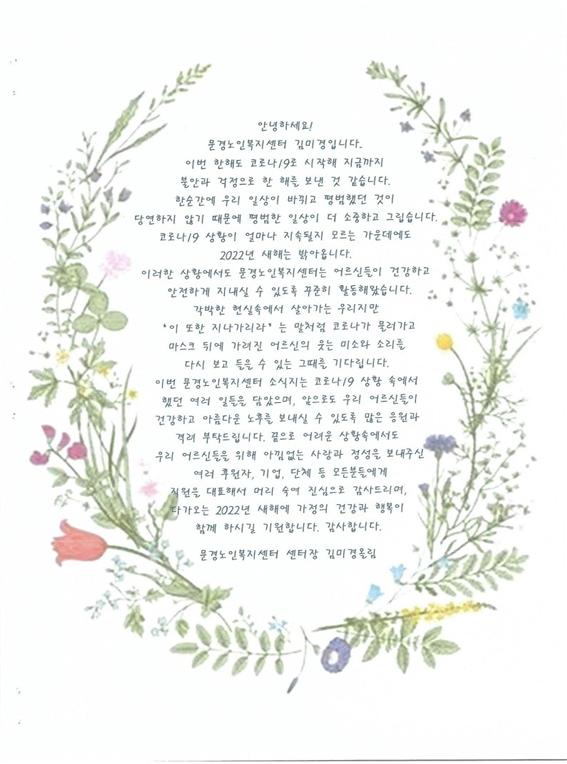 안녕하세요!
문경노인복지센터 김미경입니다.
이번 한해도 코로나19로 시작해 지금까지
불안과 걱정으로 한 해를 보낸 것 같습니다.
한순간에 우리 일상이 바뀌고 평범했던 것이
당연하지 않기 때문에 평범한 일상이 더 소중하고 그립습니다.
코로나19 상황이 얼마나 지속될지 모르는 가운데에도
2022년 새해는 밝아옵니다.
이러한 상황에서도 문경노인복지센터는 어르신들이 건강하고
안전하게 지내실 수 있도록 꾸준히 활동해왔습니다.
각박한 현실속에서 살아가는 우리지만
'이 또한 지나가리라' 는 말처럼 코로나가 물러가고
마스크 뒤에 가려진 어르신의 웃는 미소와 소리를
다시 보고 들을 수 있는 그때를 기다립니다.
이번 문경노인복지센터 소식지는 코로나19 상황 속에서
했던 여러 일들을 담았으며, 앞으로도 우리 어르신들이
건강하고 아름다운 노후를 보내실 수 있도록 많은 응원과
격려 부탁드립니다. 끝으로 어려운 상황속에서도
우리 어르신들을 위해 아낌없는 사랑과 정성을 보내주신
여러 후원자, 기업, 단체 등 모든분들에게
직원을 대표해서 머리 숙여 진심으로 감사드리며,
다가오는 2022년 새해에 가정의 건강과 행복이
함께 하시길 기원합니다. 감사합니다.
문경노인복지센터 센터장 김미경올림